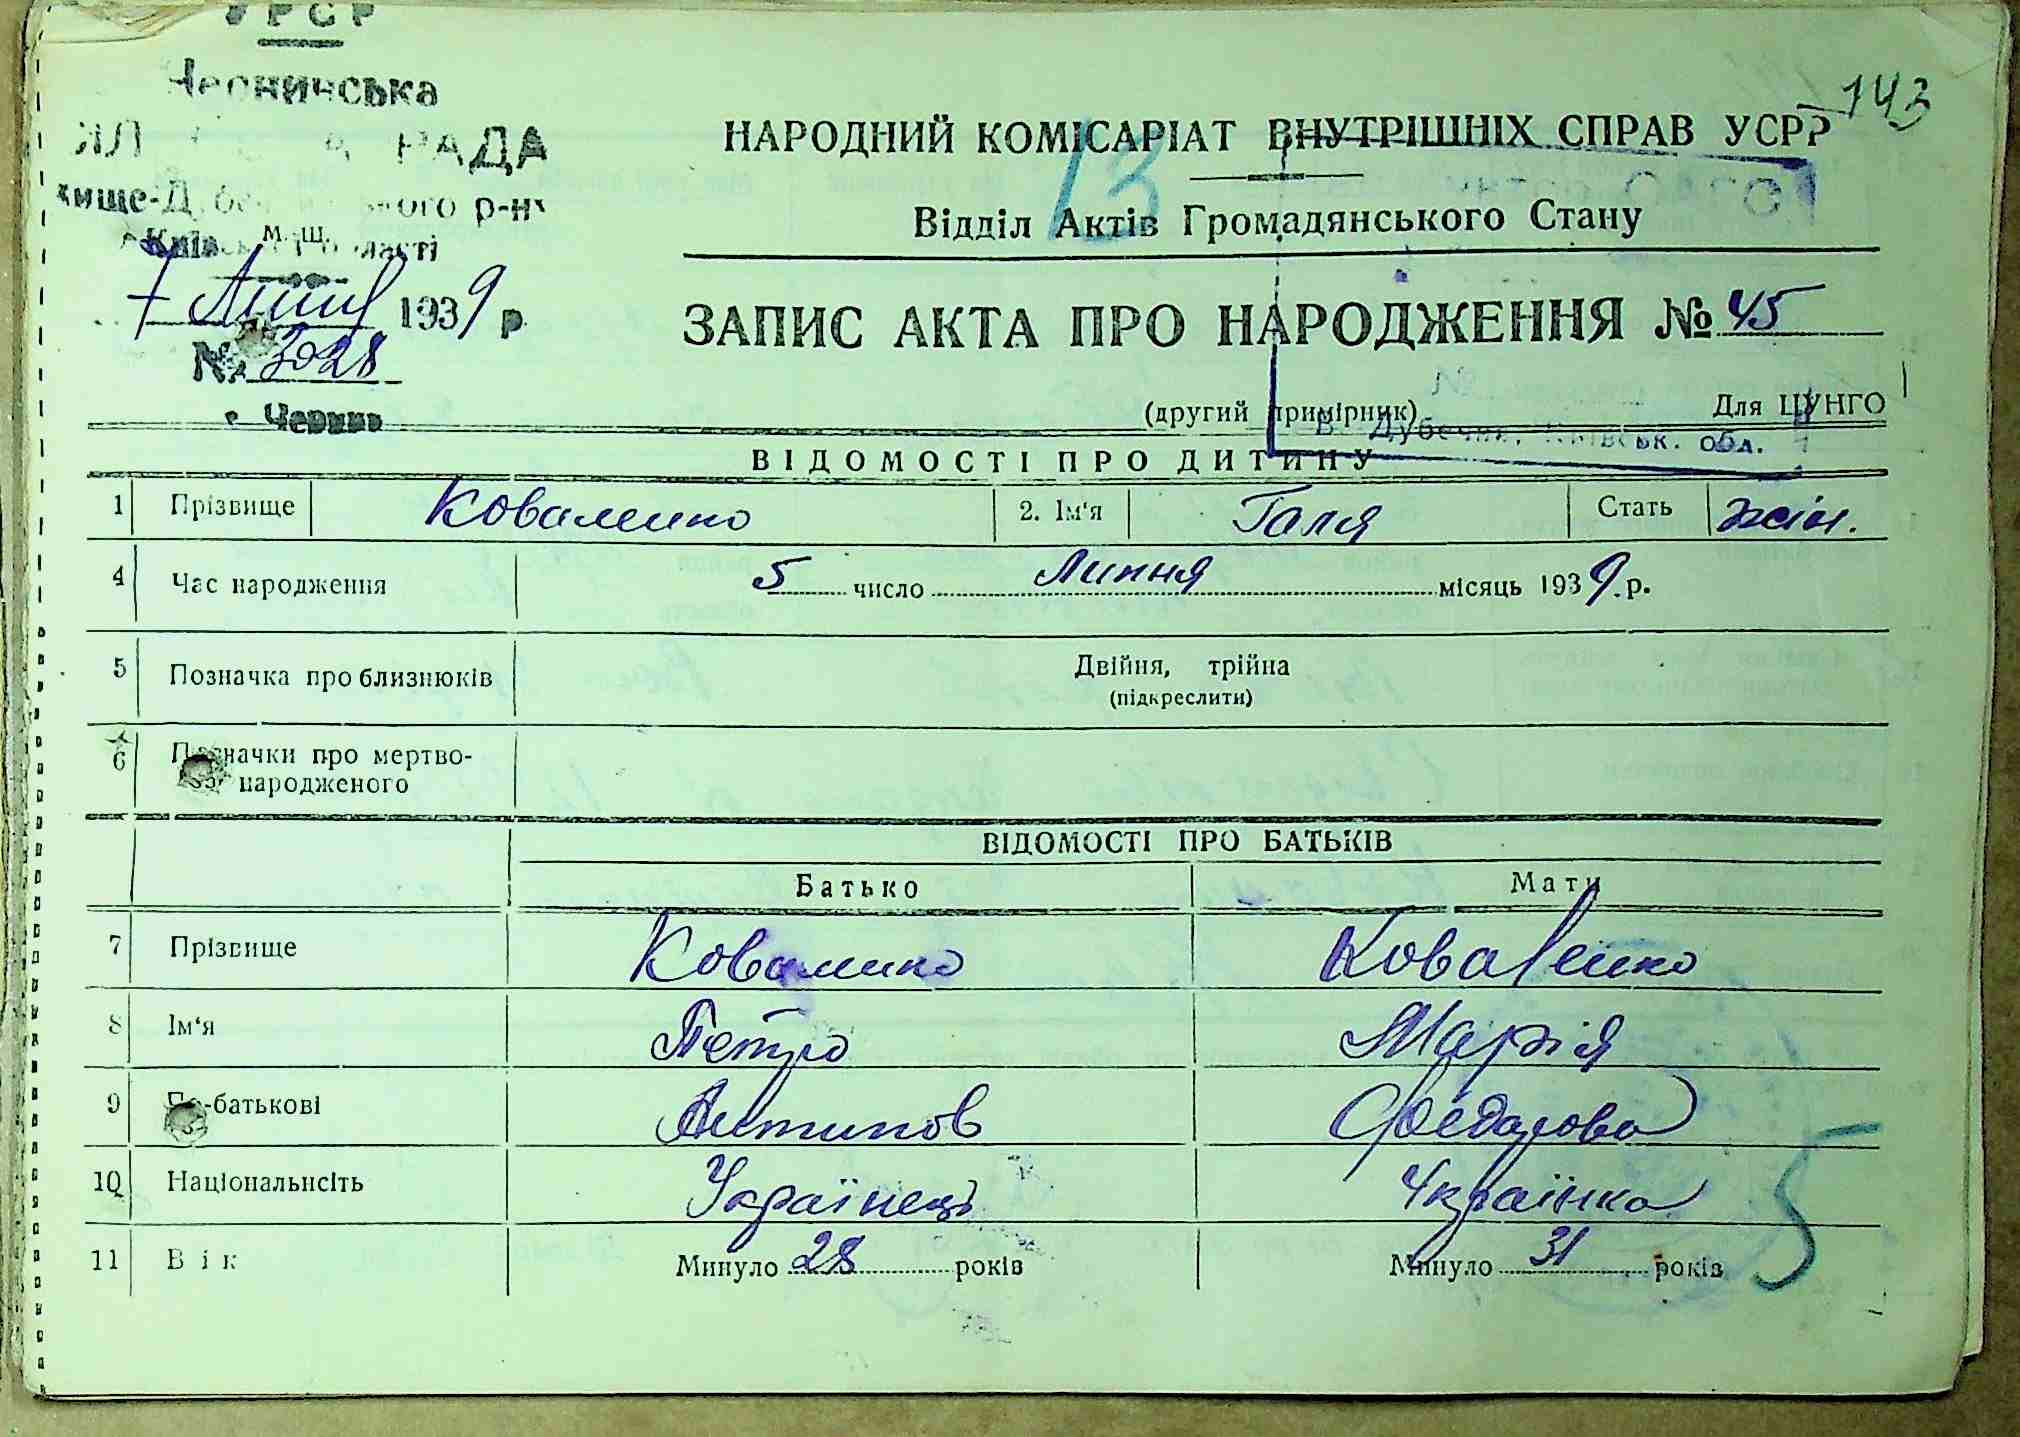 УРСР
РАДА
р-ну
М. Ш.
7 Липня 1939 р
№ 3028
143
13
НАРОДНИЙ КОМІСАРІАТ ВНУТРІШНІХ СПРАВ УСРР
Відділ Актів Громадянського Стану
ЗАПИС АКТА ПРО НАРОДЖЕННЯ № 45
(другий примірник) Для ЦУНГО
В. Дубечня, Київськ. обл.
ВІДОМОСТІ ПРО ДИТИНУ
1 Прізвище Коваленко 2. Ім'я Галя Стать жін.
4 Час народження 5 число Липня місяць 1939 р.
5 Позначка про близнюків Двійня, трійна
(підкреслити)
6 Позначки про мертво-
народженого
ВІДОМОСТІ ПРО БАТЬКІВ
Батько Мати
7 Прізвище Коваленко Коваленко
8 Ім'я Петро Марія
9 По-батькові Антипов Федорова
10 Національнсіть Українець Українка
11 Вік Минуло 28 років Минуло 31 років